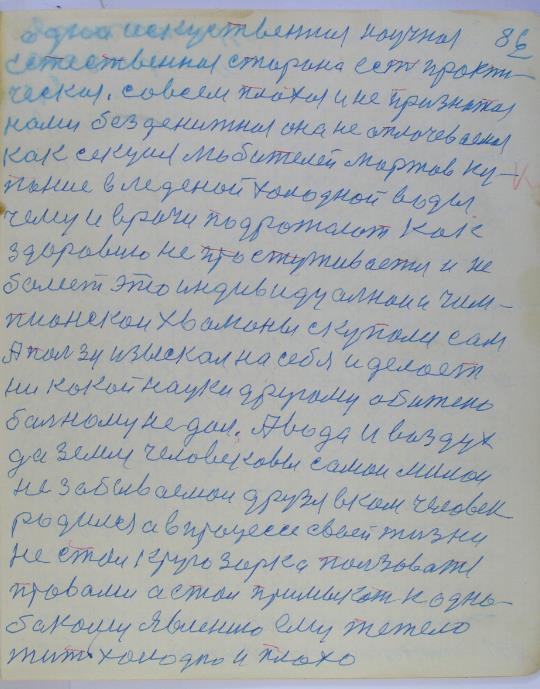 одна искуственная научная 86
естественная сторона есть практи-
ческая. совсем плохая и не признатая
нами безденижная она не оплочеваемая
как секция любителей моржов ку-
пание в леденой холодной воды
чему и врачи подрожают как
здоровию не простуживается и не
болеет это индивидуалной чим-
пионской хвалоны скупали сам
А ползу изыскал на себя и делоет
ни какой науки другому обижено
болному не дал. А вода и воздух
да земля человековы самои милои
не забываемои друзя в ком человек
родился а в процессе своей жизни
не стал круго зорка ползоватся
провами а стал примыкат к одно-
бокому явлению ему тежело
жит холодно и плохо